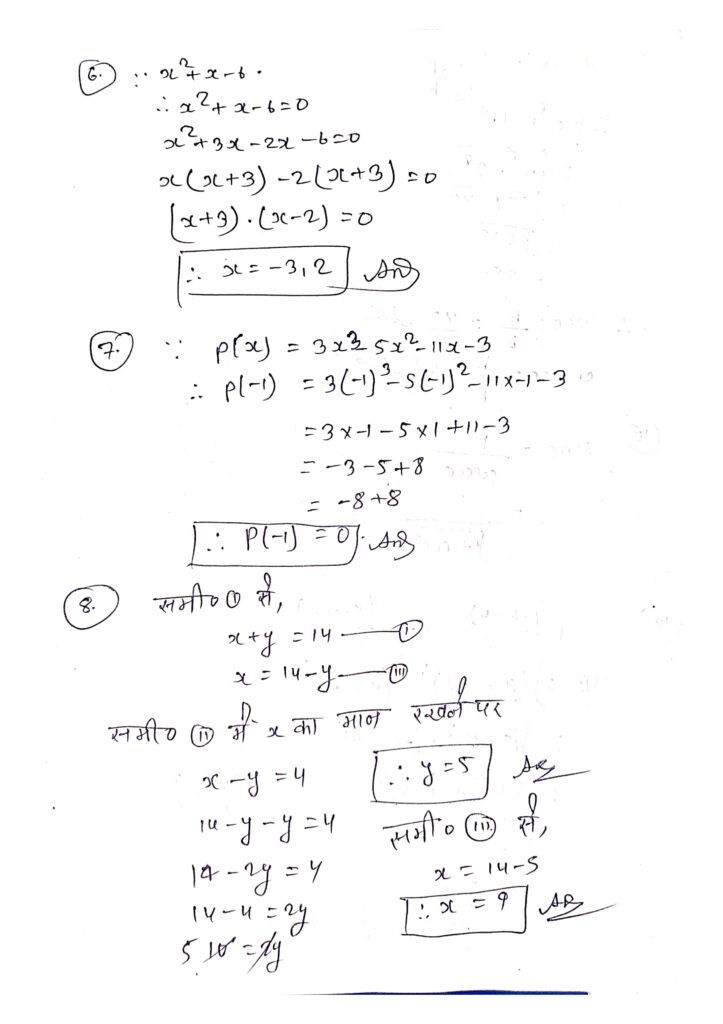 6. ∵ x²+x-6.
∴ x²+x-6=0
x²+3x-2x-6=0
x(x+3)-2(x+3)=0
(x+3).(x-2)=0
∴ x=-3,2 Ans
7. ∵ p(x) = 3x³ 5x²-11x-3
∴ p(-1) = 3(-1)³-5(-1)²-11x-1-3
=3x-1-5x1+11-3
= -3-5+8
= -8+8
∴ P(-1) = 0. Ans
8. समी० ① से,
x+y = 14 — ①
x = 14-y — ⅲ
समी० ⅱ में x का मान रखने पर
x-y = 4
14-y-y = 4
14-2y = 4
14-4 = 2y
5 10 = 2y
∴ y=5 Ans
समी० ⅲ से,
x = 14-5
∴ x = 9 Ans